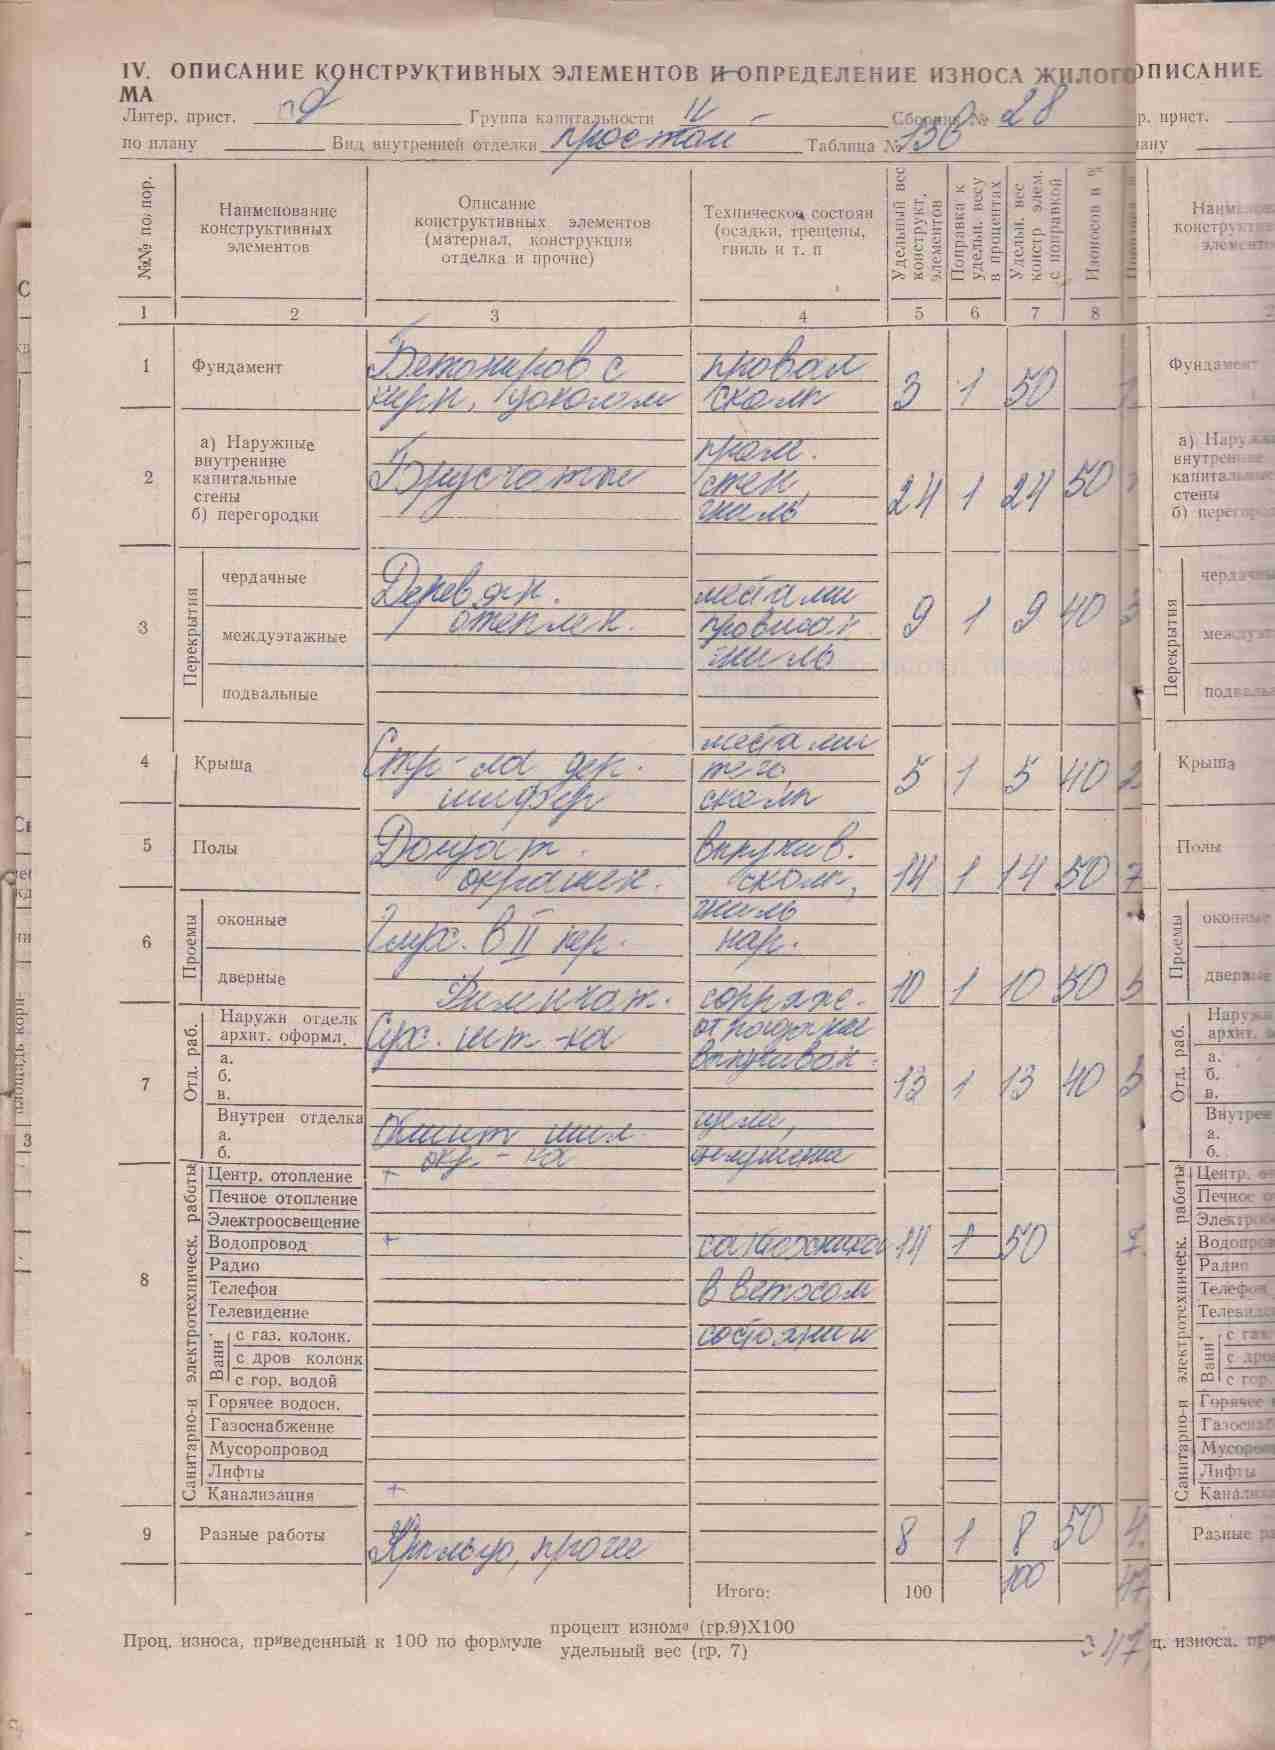 IV. ОПИСАНИЕ КОНСТРУКТИВНЫХ ЭЛЕМЕНТОВ И ОПРЕДЕЛЕНИЕ ИЗНОСА ЖИЛОГО
МА
Литер. прист. Группа капитальности II Сборник № 28
по плану Вид внутренней отделки простой Таблица № 13в
№№ по пор.
Наименование
конструктивных
элементов
Описание
конструктивных элементов
(материал, конструкция
отделка и прочие)
Техническое состоян
(осадки, трещены,
гниль и т. п
Удельный вес
конструкт,
элементов
Поправка к
удельн. весу
в процентах
Удельн. вес
констр элем.
с поправкой
Износов в %
1 2 3 4 5 6 7 8
1 Фундамент
Бетониров с
кирп. цоколем
провал
сколы
3 1 50
2 а) Наружные
внутренние
капитальные
стены
б) перегородки
Брусчатые
пром.
стен,
гниль
24 1 24 50
3 Перекрытия
чердачные
междуэтажные
подвальные
Деревян.
отеплен.
местами
провисан.
гниль
9 1 9 40 3
4 Крыша
Стр-ла дер.
шифер
местами
течь,
сколы
5 1 5 40 2
5 Полы
Дощат.
окрашен.
выпучив.
скол,
гниль
14 1 14 50 7
6 Проемы
оконные
дверные
Глух. в II пер.
Филенчат.
нар.
сопряже-
10 1 10 50 5
7 Отд. раб.
Наружн отделк
архит. оформл.
а.
б.
в.
Внутрен отделка
а.
б.
Сух. шт-ка
окр-ка
выпучиван.
щели,
13 1 13 40 5
8 Санитарно-и электротехническ. работы
Центр. отопление +
Печное отопление
Электроосвещение
Водопровод +
Радио
Телефон
Телевидение
Ванн
с газ. колонк.
с дров колонк
с гор. водой
Горячее водосн.
Газоснабжение
Мусоропровод
Лифты
Канализация +
сантехника
в ветхом
состоянии
14 1 50 7
9 Разные работы
Крыльцо, проче
8 1 8 50 4
Итого: 100 100 47
Проц. износа, приведенный к 100 по формуле
процент износа (гр.9)Х100
удельный вес (гр. 7)
= 47
ОПИСАНИЕ
р. прист.
лану
Фундамент
а) Наруж
внутренние
капитальные
стены
б) перегород
Перекрытия
чердачны
междуэ
подваль
Крыша
Полы
Проемы
оконные
дверные
Отд. раб.
Наружн
архит. о
а.
б.
в.
Внутрен
а.
б.
Санитарно-и электротехническ. работы
Центр. о
Печное о
Электроо
Водопров
Радио
Телефон
Телевиде
Ванн
с газ
с дров
с гор.
Горячее в
Газоснаб
Мусоропр
Лифты
Канализа
Разные ра
ц. износа, при